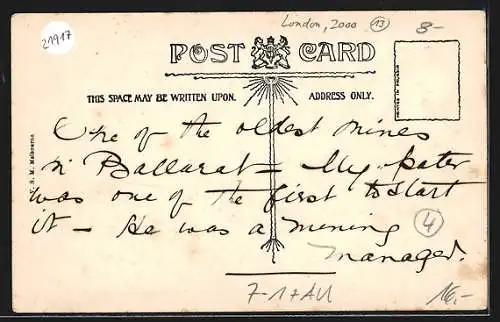 21917
London, 2000 13
8-
POST CARD
THIS SPACE MAY BE WRITTEN UPON. ADDRESS ONLY.
One of the oldest mines
in Ballarat - My pater
was one of the first to start
it - He was a mining
manager.
4
7-17AU
16,-
M. Melbourne